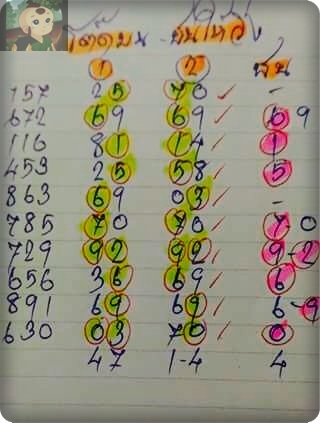 1 2 สน
157 25 70 ✓ -
672 69 69 ✓ 6 9
116 81 14 ✓ 1
453 25 58 ✓ 5
863 69 03 ✓ -
785 70 70 ✓ 7 0
729 92 92 ✓ 9-2
656 36 69 ✓ 6
891 69 69 ✓ 6-9
630 03 70 ✓ 0
47 1-4 4